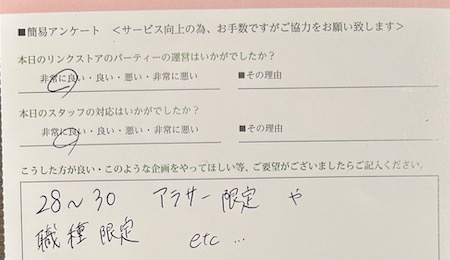 ■簡易アンケート ＜サービス向上の為、お手数ですがご協力をお願い致します＞
本日のリンクストアのパーティーの運営はいかがでしたか？
非常に良い・良い・悪い・非常に悪い ■その理由
本日のスタッフの対応はいかがでしたか？
非常に良い・良い・悪い・非常に悪い ■その理由
こうした方が良い・このような企画をやってほしい等、ご要望がございましたらご記入ください。
28〜30 アラサー限定 や
職種限定 etc…